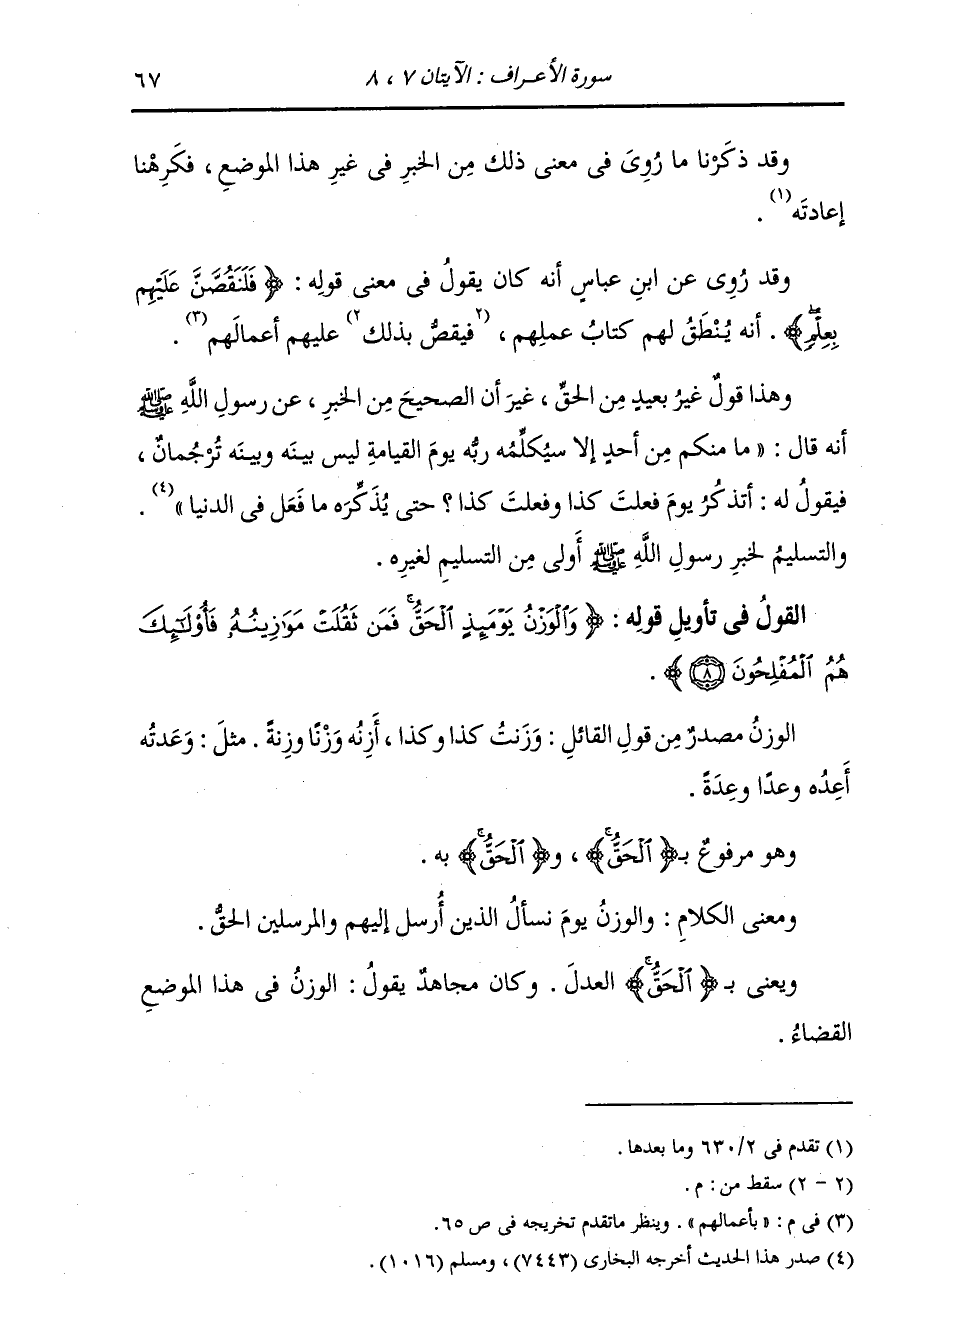 سورة الأعراف : الآيتان ٧ ، ٨
٦٧
وقد ذكَرْنا ما رُوِىَ فى معنى ذلك مِن الخبرِ فى غيرِ هذا الموضعِ ، فكَرِهْنا
إعادتَه(١) .
وقد رُوِى عن ابنِ عباسٍ أنه كان يقولُ فى معنى قولِه : ﴿ فَلَنَقُصَّنَّ عَلَيْهِم
بِعِلْمٍۖ ﴾ . أنه يُنْطَقُ لهم كتابُ عملِهم ، (٢فيقصُّ بذلك٢) عليهم أعمالَهم(٣) .
وهذا قولٌ غيرُ بعيدٍ مِن الحقِّ ، غيرَ أن الصحيحَ مِن الخبرِ ، عن رسولِ اللَّهِ ﷺ
أنه قال : « ما منكم مِن أحدٍ إلا سيُكلِّمُه ربُّه يومَ القيامةِ ليس بينَه وبينَه تُرْجُمانٌ ،
فيقولُ له : أتذكُرُ يومَ فعلتَ كذا وفعلتَ كذا ؟ حتى يُذَكِّرَه ما فَعَل فى الدنيا »(٤) .
والتسليمُ لخبرِ رسولِ اللَّهِ ﷺ أَولى مِن التسليمِ لغيرِه .
القولُ فى تأويلِ قولِه : ﴿ وَٱلْوَزْنُ يَوْمَئِذٍ ٱلْحَقُّۚ فَمَن ثَقُلَتْ مَوَٰزِينُهُۥ فَأُو۟لَٰٓئِكَ
هُمُ ٱلْمُفْلِحُونَ ٨ ﴾ .
الوزنُ مصدرٌ مِن قولِ القائلِ : وَزَنتُ كذا وكذا ، أَزِنُه وَزْنًا وزِنةً . مثلَ : وَعَدتُه
أَعِدُه وعدًا وعِدَةً .
وهو مرفوعٌ بـ﴿ ٱلْحَقُّۚ ﴾ ، و﴿ ٱلْحَقُّۚ ﴾ به .
ومعنى الكلامِ : والوزنُ يومَ نسألُ الذين أُرسل إليهم والمرسلين الحقُّ .
ويعنى بـ ﴿ ٱلْحَقُّۚ ﴾ العدلَ . وكان مجاهدٌ يقولُ : الوزنُ فى هذا الموضعِ
القضاءُ .
(١) تقدم فى ٢/ ٦٣٠ وما بعدها .
(٢ - ٢) سقط من : م .
(٣) فى م : « بأعمالهم » . وينظر ماتقدم تخريجه فى ص ٦٥.
(٤) صدر هذا الحديث أخرجه البخارى (٧٤٤٣) ، ومسلم (١٠١٦) .